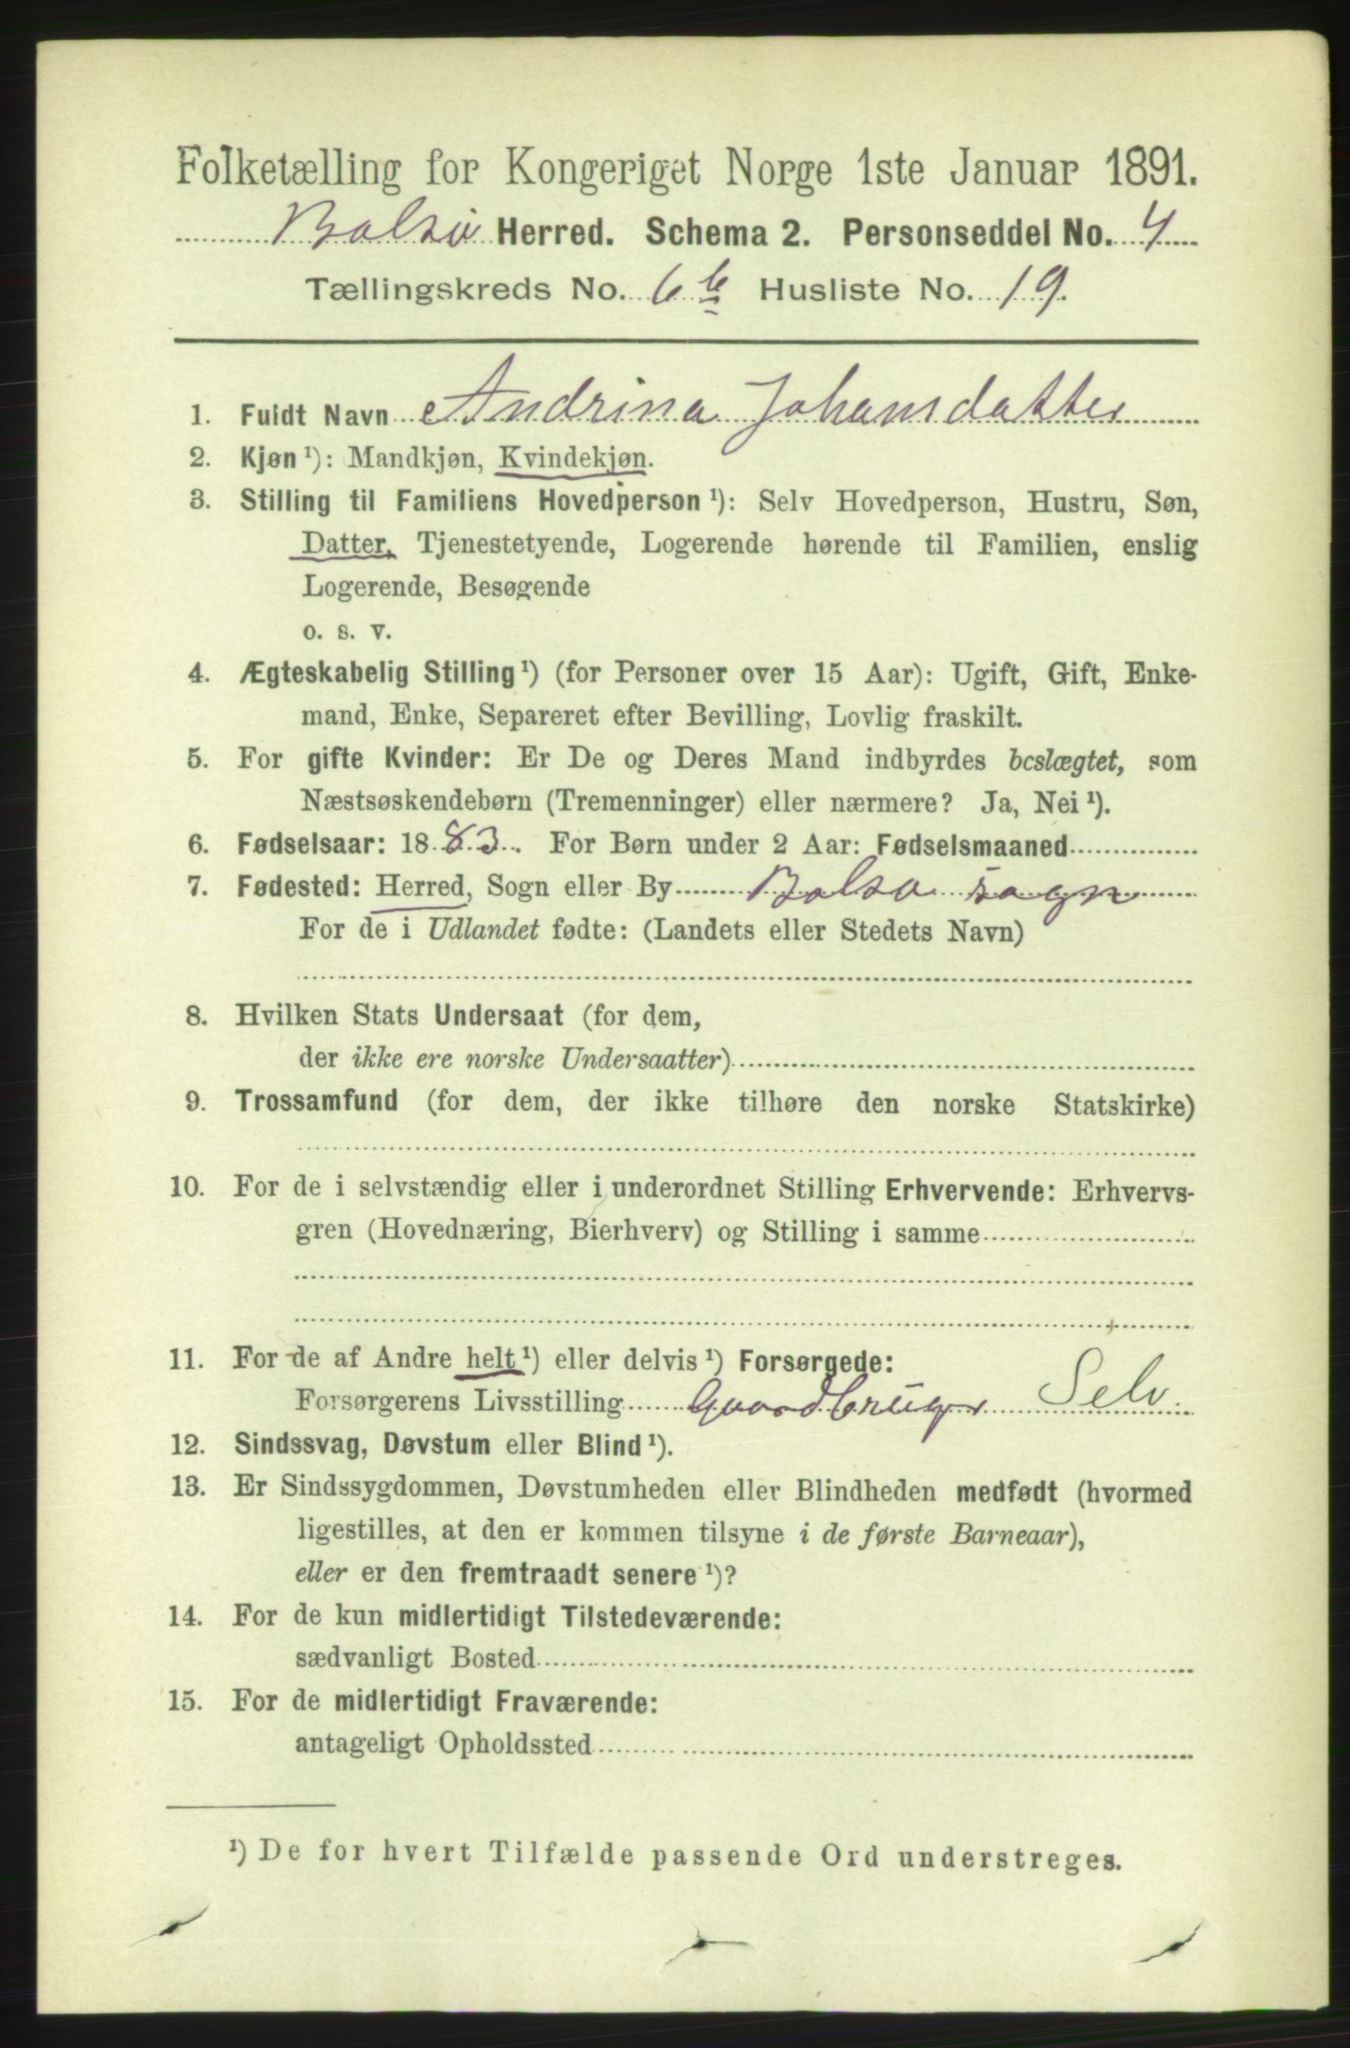 Folketælling for Kongeriget Norge 1ste Januar 1891.
Bolsø Herred. Schema 2. Personseddel No. 4
Tællingskreds No. 6 b Husliste No. 19.
1. Fuldt Navn Andrina Johansdatter
2. Kjøn ¹): Mandkjøn, Kvindekjøn.
3. Stilling til Familiens Hovedperson ¹): Selv Hovedperson, Hustru, Søn,
Datter, Tjenestetyende, Logerende hørende til Familien, enslig
Logerende, Besøgende
o. s. v.
4. Ægteskabelig Stilling ¹) (for Personer over 15 Aar): Ugift, Gift, Enke-
mand, Enke, Separeret efter Bevilling, Lovlig fraskilt.
5. For gifte Kvinder: Er De og Deres Mand indbyrdes beslægtet, som
Næstsøskendebørn (Tremenninger) eller nærmere? Ja, Nei ¹).
6. Fødselsaar: 1883. For Børn under 2 Aar: Fødselsmaaned
7. Fødested: Herred, Sogn eller By Bolsø sogn
For de i Udlandet fødte: (Landets eller Stedets Navn)
8. Hvilken Stats Undersaat (for dem,
der ikke ere norske Undersaatter)
9. Trossamfund (for dem, der ikke tilhøre den norske Statskirke)
10. For de i selvstændig eller i underordnet Stilling Erhvervende: Erhvervs-
gren (Hovednæring, Bierhverv) og Stilling i samme
11. For de af Andre helt ¹) eller delvis ¹) Forsørgede:
Forsørgerens Livsstilling Gaardbruger Selv.
12. Sindssvag, Døvstum eller Blind ¹).
13. Er Sindssygdommen, Døvstumheden eller Blindheden medfødt (hvormed
ligestilles, at den er kommen tilsyne i de første Barneaar),
eller er den fremtraadt senere ¹)?
14. For de kun midlertidigt Tilstedeværende:
sædvanligt Bosted
15. For de midlertidigt Fraværende:
antageligt Opholdssted
¹) De for hvert Tilfælde passende Ord understreges.